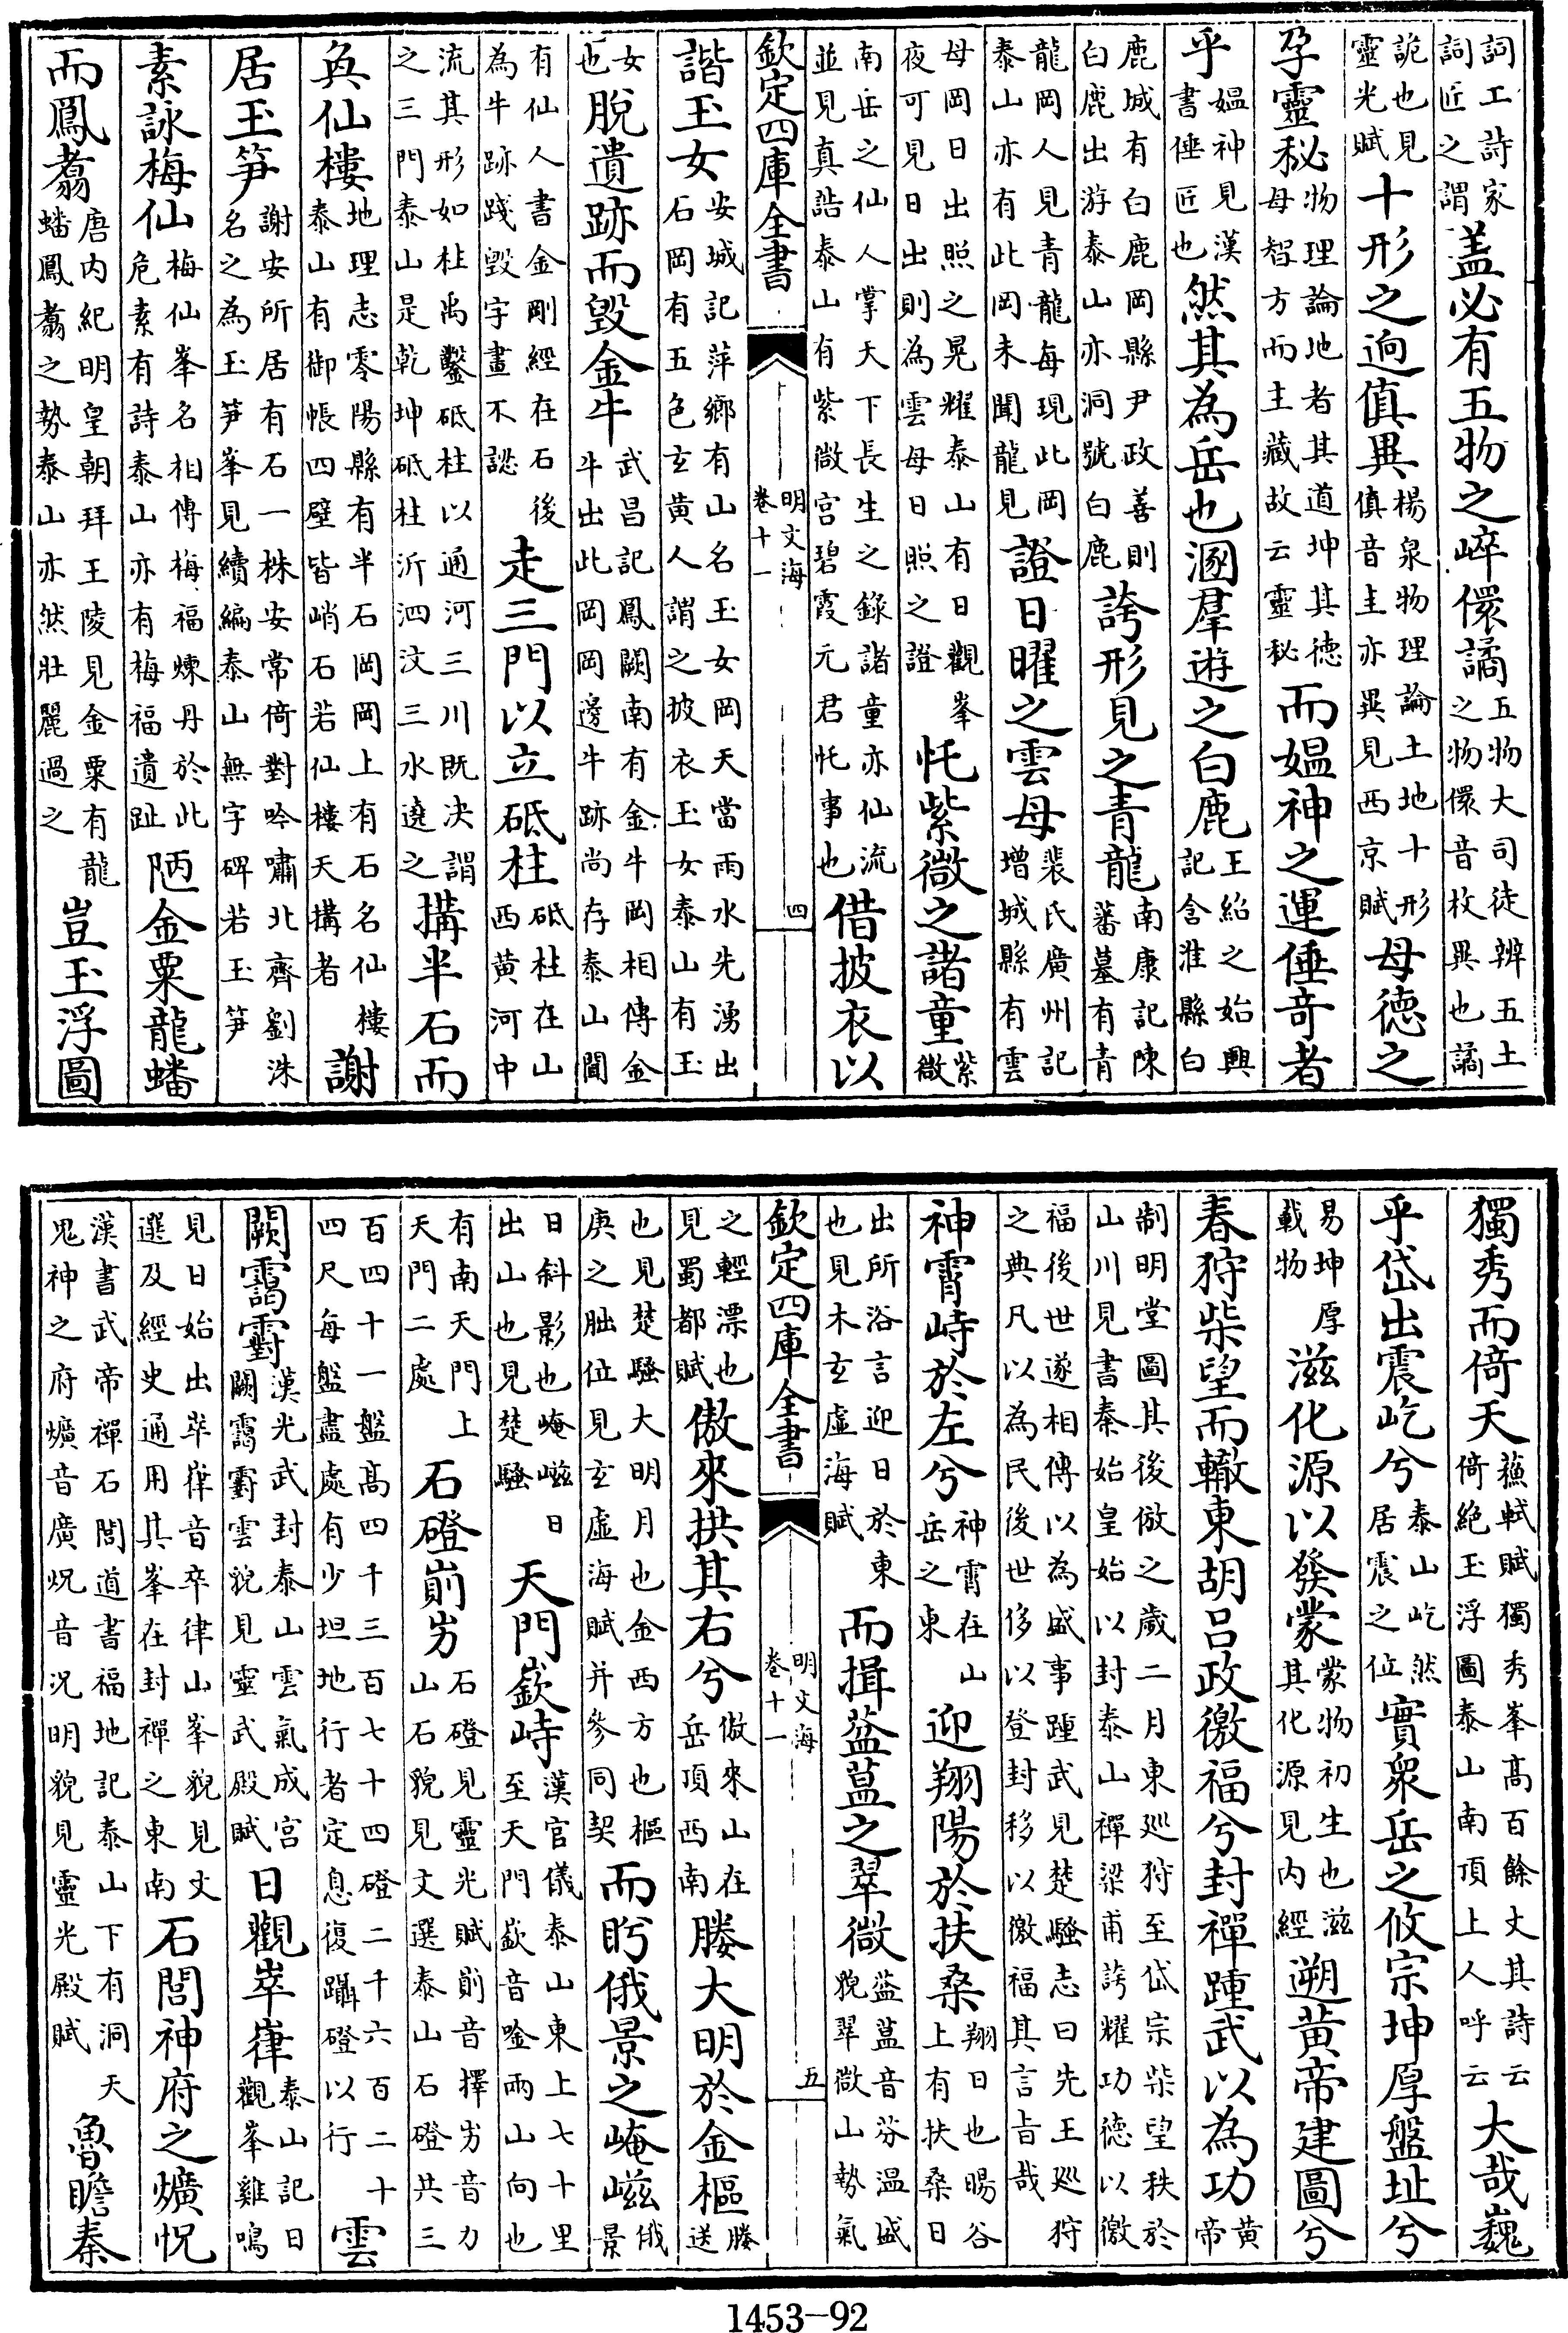 詞工詩家詞匠之謂盖必有五物之崪儇譎五物大司徒辨五土之物儇音枚異也譎
詭也見靈光賦十形之逈傎異楊泉物理論土地十形傎音圭亦異見西京賦母德之
孕靈秘物理論地者其道坤其德母智方而主藏故云靈秘而媼神之運倕竒者
乎媼神見漢書倕匠也然其為岳也溷羣遊之白鹿王紹之始興記含淮縣白
鹿城有白鹿岡縣尹政善則白鹿出游泰山亦洞號白鹿誇形見之青龍南康記陳蕃墓有青
龍岡人見青龍每現此岡泰山亦有此岡未聞龍見證日曜之雲母裴氏廣州記增城縣有雲
母岡日出照之晃耀泰山有日觀峯夜可見日出則為雲母日照之證忯紫微之諸童紫微
南岳之仙人掌天下長生之錄諸童亦仙流並見真誥泰山有紫微宫碧霞元君忯事也借披衣以
欽定四庫全書 明文海 卷十一 四
諧玉女安城記萍鄉有山名玉女岡天當雨水先湧出石岡有五色玄黄人謂之披衣玉女泰山有玉
女也脫遺跡而毁金牛武昌記鳳闕南有金牛岡相傳金牛出此岡岡邊牛跡尚存泰山間
有仙人書金剛經在石後為牛跡踐毁字畫不認走三門以立砥柱砥柱在山西黄河中
流其形如柱禹鑿砥柱以通河三川既决謂之三門泰山是乾坤砥柱沂泗汶三水遶之搆半石而
奐仙樓地理志零陽縣有半石岡岡上有石名仙樓泰山有御帳四壁皆峭石若仙樓天搆者謝
居玉笋謝安所居有石一株安常倚對吟嘯北齊劉洙名之為玉笋峯見續編泰山無字碑若玉笋
素詠梅仙梅仙峯名相傳梅福煉丹於此危素有詩泰山亦有梅福遺趾陋金粟龍蟠
而鳳翥唐内紀明皇朝拜王陵見金粟有龍蟠鳳翥之勢泰山亦然壯麗過之豈玉浮圖
獨秀而倚天蘇軾賦獨秀峯髙百餘丈其詩云倚絶玉浮圖泰山南頂上人呼云大哉巍
乎岱出震屹兮泰山屹然居震之位實衆岳之攸宗坤厚盤址兮
易坤厚載物滋化源以發蒙蒙物初生也滋其化源見内經遡黄帝建圖兮
春狩柴望而轍東胡吕政徼福兮封禪踵武以為功黄帝
制明堂圖其後倣之歲二月東廵狩至岱宗柴望秩於山川見書秦始皇始以封泰山禪梁甫誇耀功德以徼
福後世遂相傳以為盛事踵武見楚騷志曰先王廵狩之典凡以為民後世侈以登封移以徼福其言旨哉
神霄峙於左兮神霄在山岳之東迎翔陽於扶桑翔日也暘谷上有扶桑日
出所浴言迎日於東也見木玄虛海賦而揖葐蒀之翠微葐蒀音芬温盛貌翠微山勢氣
欽定四庫全書 明文海 卷十一 五
之輕漂也見蜀都賦傲來拱其右兮傲來山在岳頂西南媵大明於金樞媵送
也見楚騷大明月也金西方也樞庚之朏位見玄虛海賦并參同契而眄俄景之崦嵫俄景
日斜影也崦嵫日出山也見楚騷天門嶔峙漢官儀泰山東上七十里至天門嶔音唫兩山向也
有南天門上天門二處石磴崱屴石磴見靈光賦崱音擇屴音力山石貌見文選泰山石磴共三
百四十一盤髙四千三百七十四磴二千六百二十四尺每盤盡處有少坦地行者定息復躡磴以行雲
闕靄䨴漢光武封泰山雲氣成宫闕靄䨴雲貌見靈武殿賦日觀崒嵂泰山記日觀峯雞鳴
見日始出崒嵂音卒律山峯貌見文選及經史通用其峯在封禪之東南石閭神府之爌怳
漢書武帝禪石閭道書福地記泰山下有洞天鬼神之府爌音廣怳音况明貌見靈光殿賦魯瞻秦
1453-92